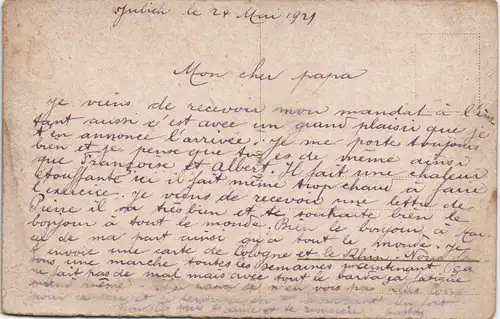 Julich le 24 Mai 1921
Mon cher papa
Je viens de recevoir mon mandat à l'ins
tant aussi c'est avec un grand plaisir que je
t'en annonce l'arrivée. Je me porte toujours
bien et je pense que tu es de même ainsi
que Françoise et Albert. Il fait une chaleur
étouffante ici il fait même trop chaud à faire
l'exercice. Je viens de recevoir une lettre de
Pierre il va très bien et te souhaite bien le
bonjour à tout le monde. Bien le bonjour à
de ma part ainsi qu'à tout le monde. Je
envoie une carte de Cologne et le Rhin. Nous
ons une marche toutes les semaines maintenant
ne fait pas de mal mais avec tout le barda ça fatigue
quand même.